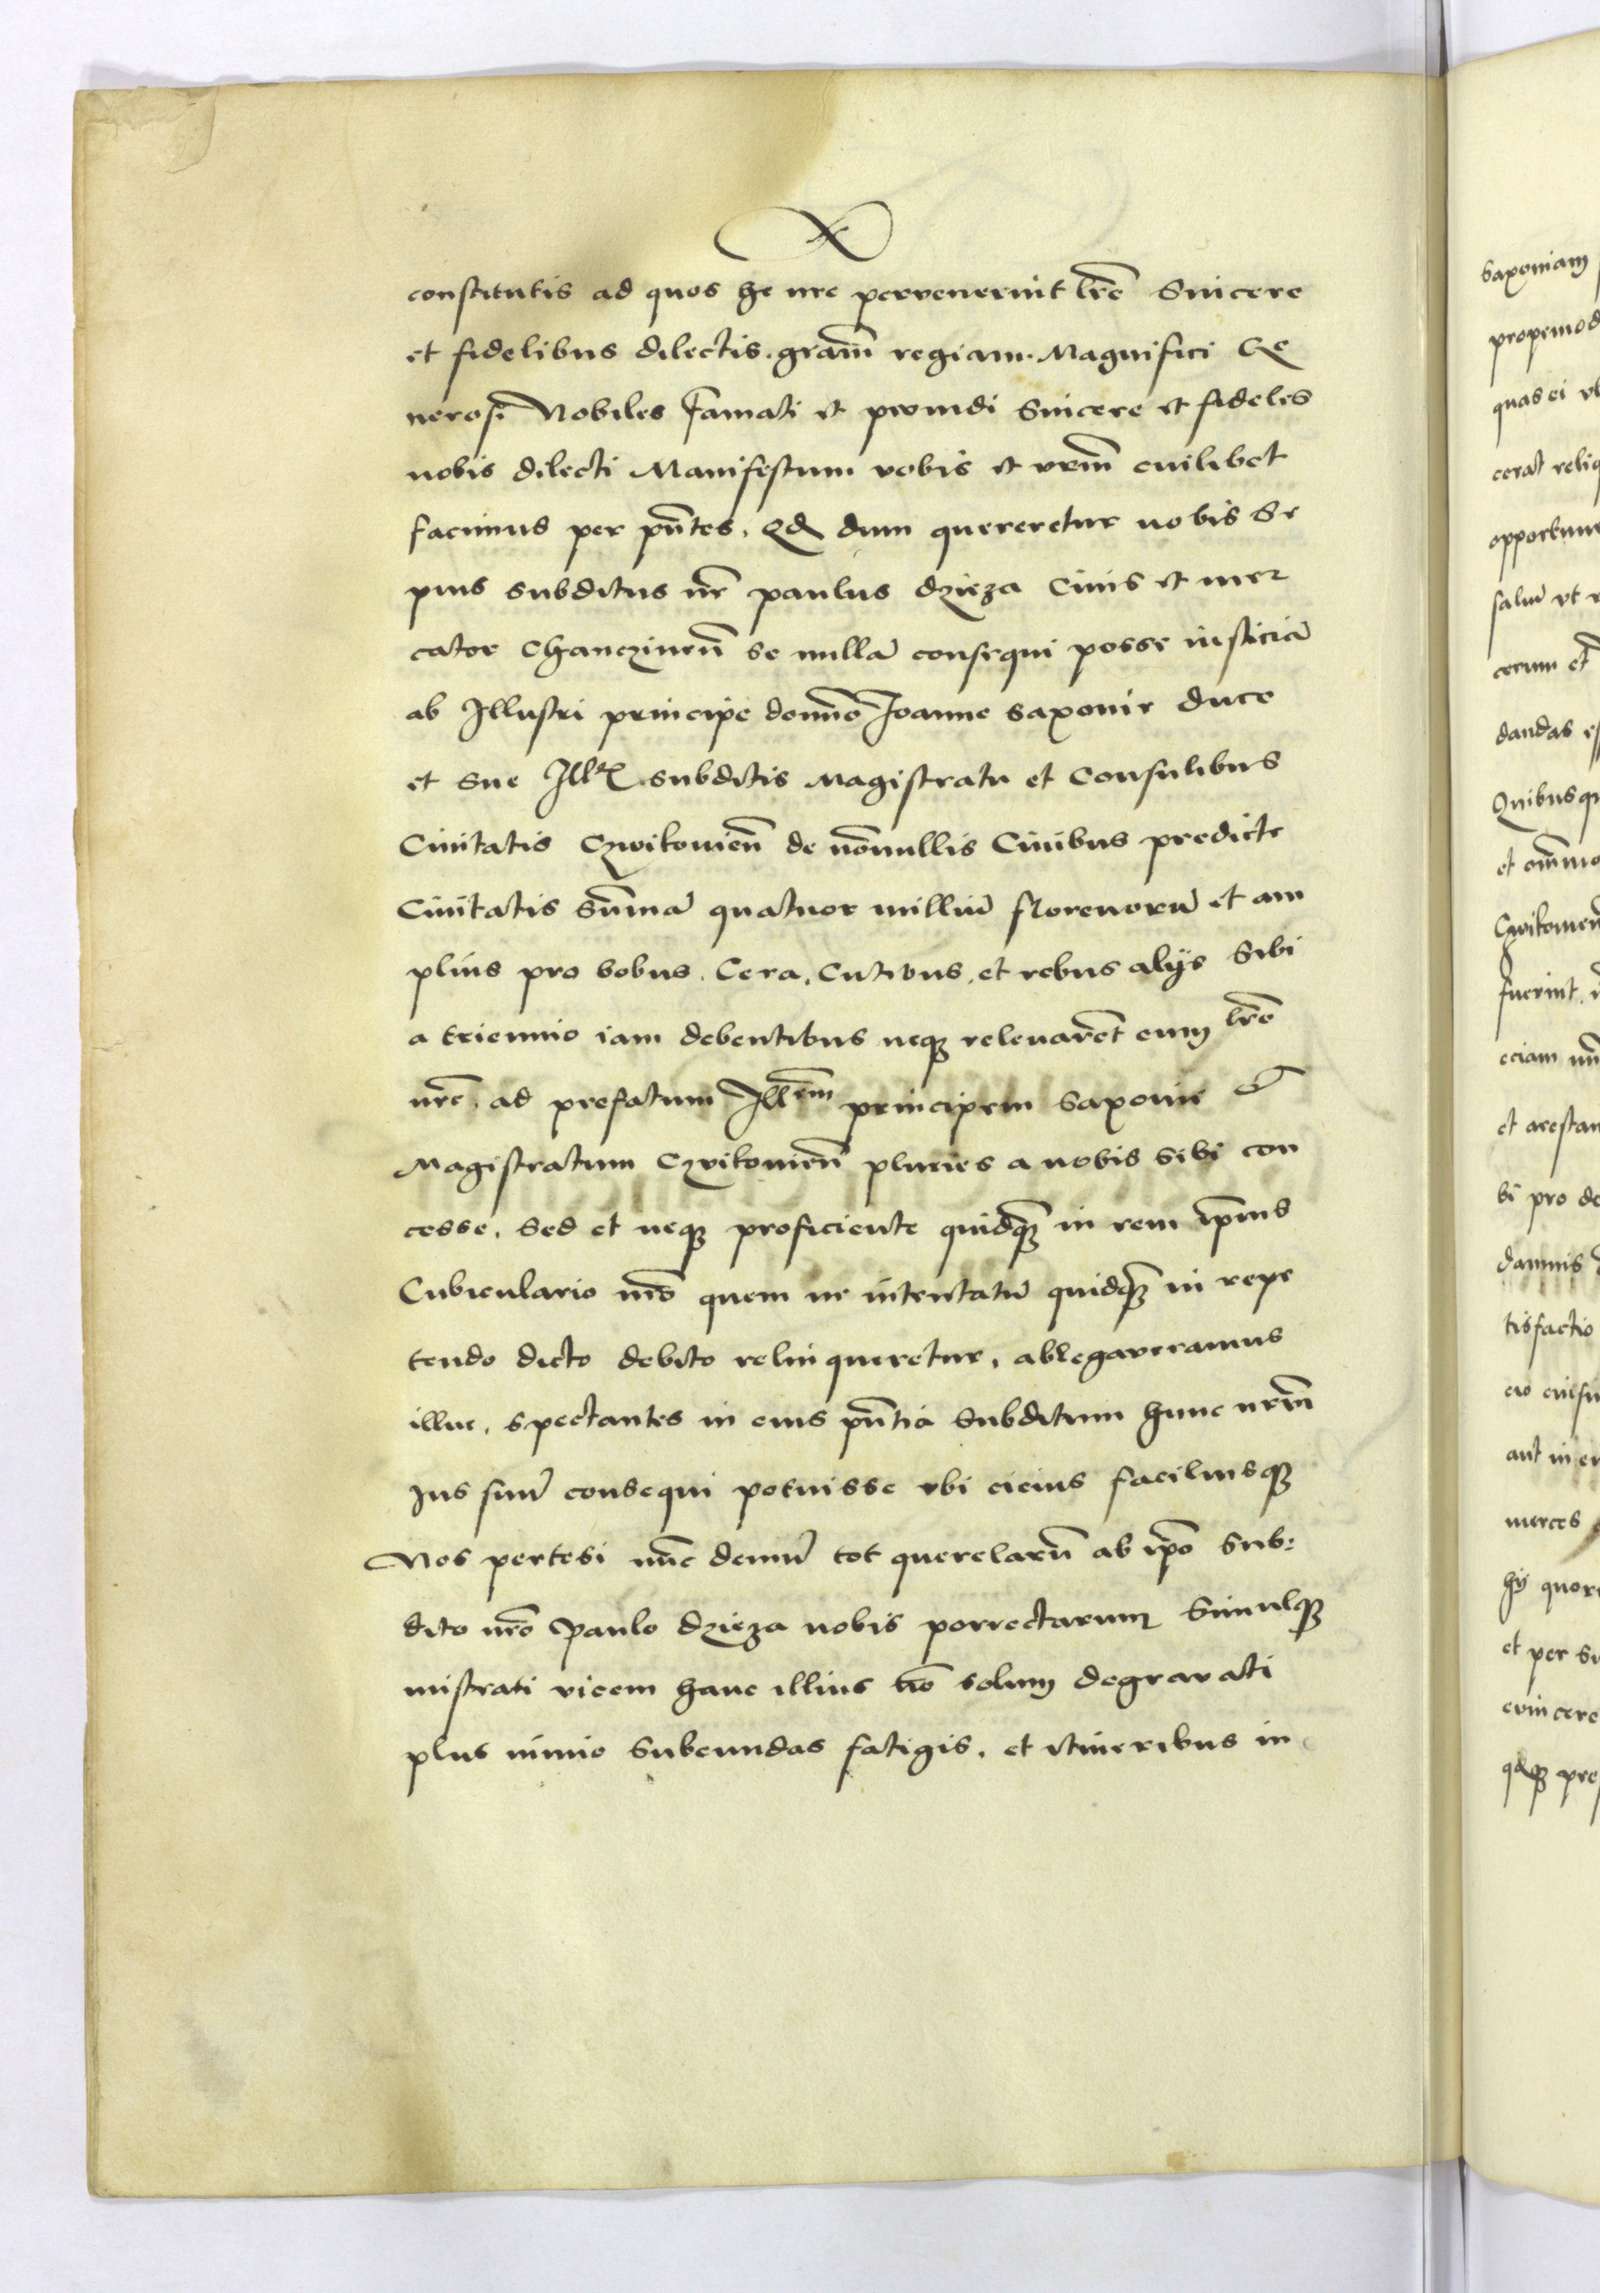 constitutis ad quos he nre pervenerint lre Sincere
et fidelibus dilectis. gram regiam. Magnifici Ge
nerosi Nobiles famati et providi Sincere et fideles
nobis dilecti Manifestum vobis et vrm cuilibet
facimus per pntes. Qd dum quereretur nobis Se
pius subditus nr paulus dzieza Civis et mer
cator Chanczinen se nulla consequi posse iusticia
ab Illustri principe domno Joanne saxonie duce
et Sue Ill. subditis Magistratu et Consulibus
Civitatis Czvikovien de nonnullis Civibus predicte
Civitatis Summa quatuor milliu florenoru et am
plius pro bobus. Cera. Cutibus. et rebus alijs Sibi
a triennio iam debentibus neqz relevarent eum lre
nre. ad prefatum Illrm principem saxonie et
Magistratum Czvikovien pluries a nobis sibi con
cesse. Sed et neqz proficiente quidqz in rem ipius
Cubiculario nro quem ne intentatu quidqz in repe
tendo dicto debito relinqueretur. ablegaveramus
illuc. spectantes in eius pntia subditum hunc nrm
Jus suu consequi potuisse vbi cicius faciliusqz
Nos pertesi nunc demu tot querelaru ab ipo Sub:
dito nro Paulo dzieza nobis porrectarum Simulqz
mistrati vicem hanc illius no solum degravati
plus nimio subeundas fatigis. et itineribus in
Saxoniam
propemod
quas ei vl
cerat reliq
opportune
salvu vt
cerum et
dandas es
Quibus qu
et omnimo
Czvikovien
fuerint.
eciam
et arestan
bi pro de
damnis
tisfactio
cio cuiusu
aut in eu
merces
hij quor
et per su
evincere
pre